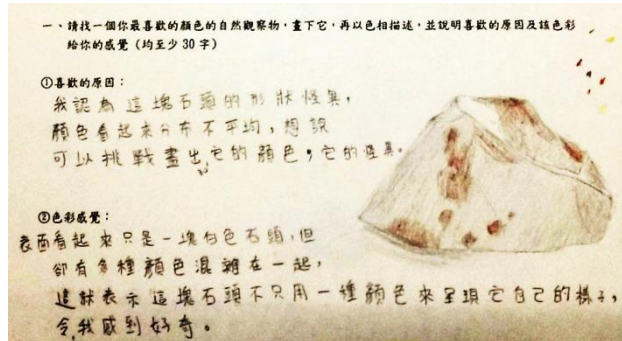 一、請找一個你最喜歡的顏色的自然觀察物，畫下它，再以色相描述，並說明喜歡的原因及該色彩
給你的感覺（均至少 30 字）
①喜歡的原因：
我認為這塊石頭的形狀怪異，
顏色看起來分布不平均，想說
可以挑戰畫出它的顏色，它的怪異。
②色彩感覺：
表面看起來只是一塊白色石頭，但
卻有多種顏色混雜在一起，
這就表示這塊石頭不只用一種顏色來呈現它自己的樣子，
令我感到好奇。